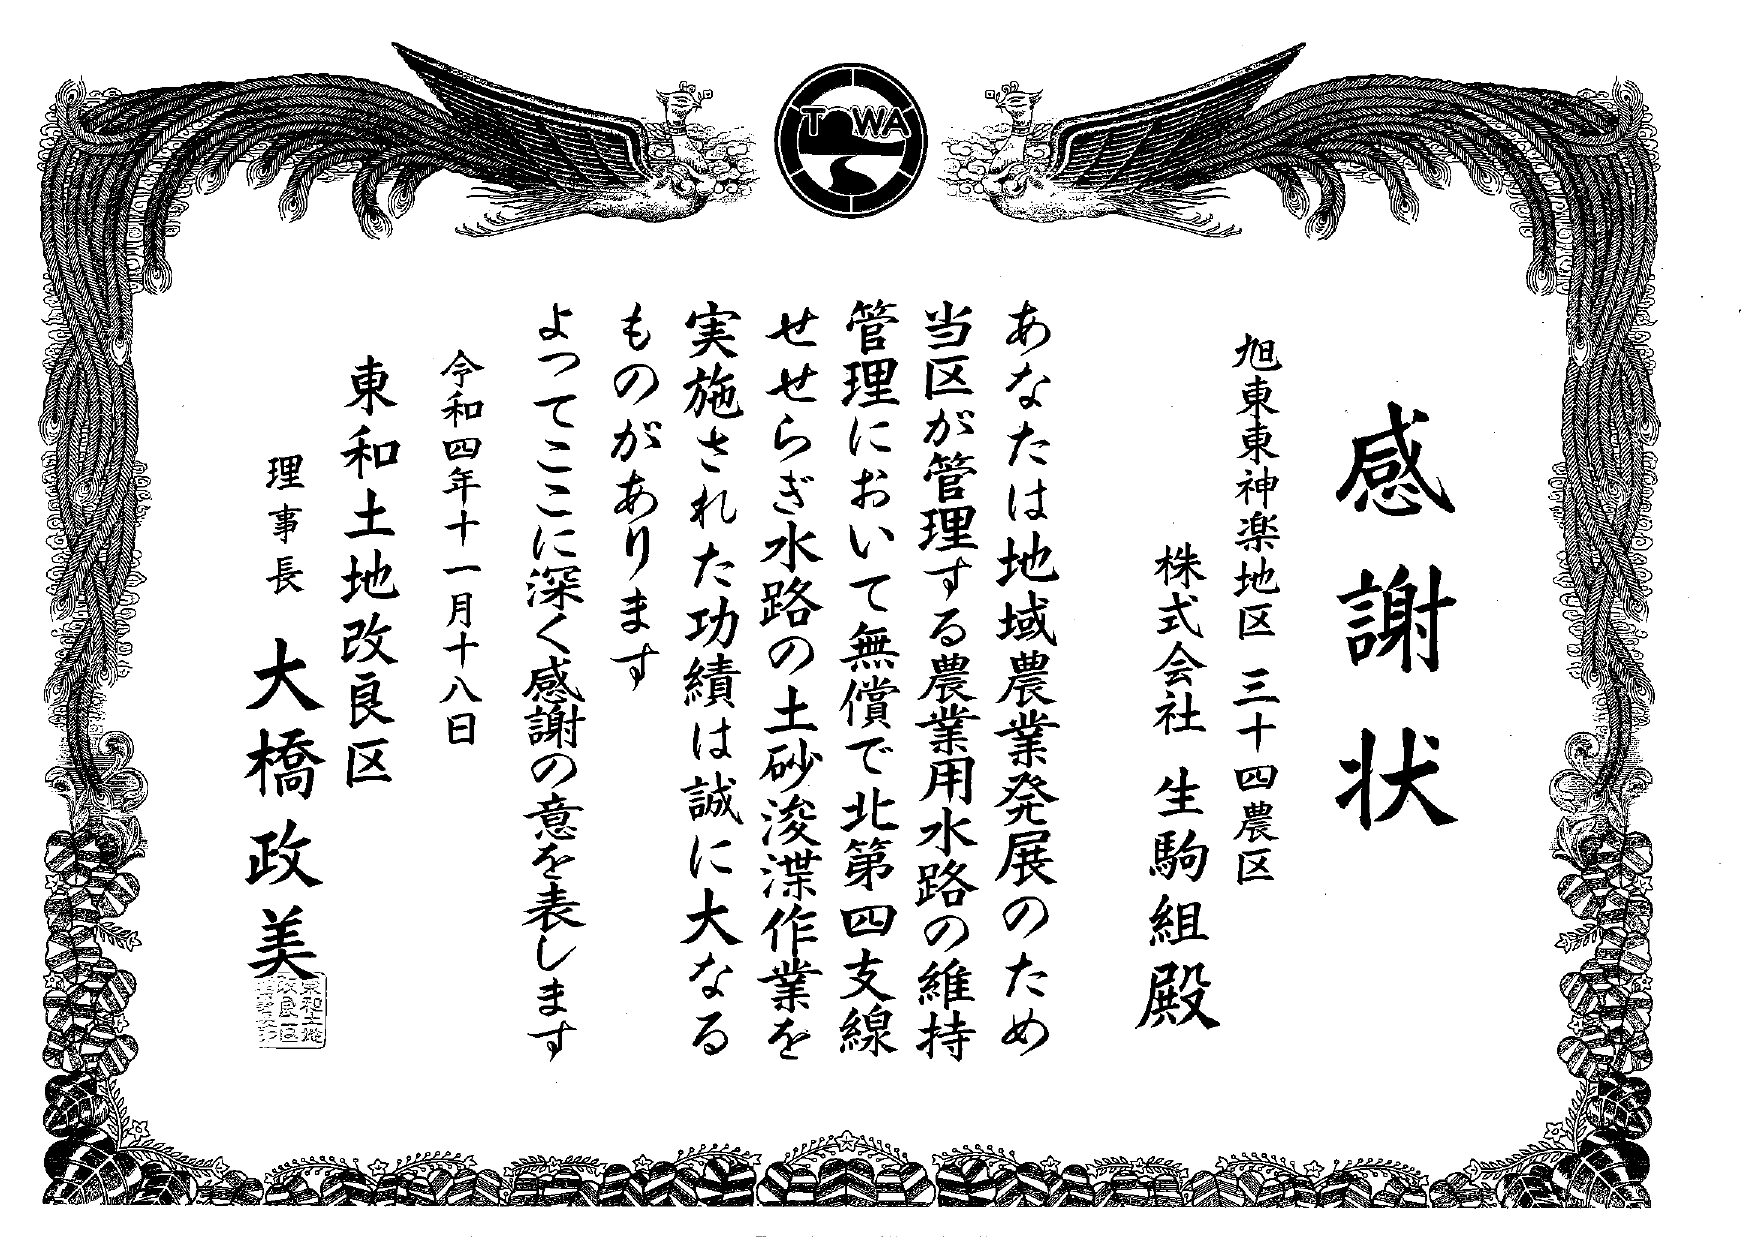 TOWA
感謝状
旭東東神楽地区 三十四農区
株式会社 生駒組殿
あなたは地域農業発展のため
当区が管理する農業用水路の維持
管理において無償で北第四支線
せせらぎ水路の土砂浚渫作業を
実施された功績は誠に大なる
ものがあります
よってここに深く感謝の意を表します
令和四年十一月十八日
東和土地改良区
理事長 大橋政美
東和土地
改良区